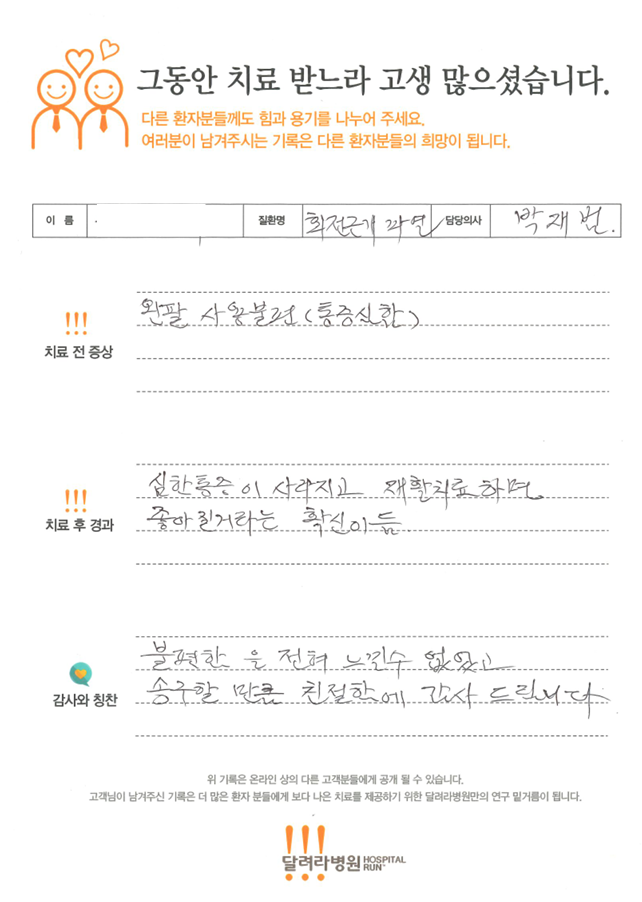 그동안 치료 받느라 고생 많으셨습니다.
다른 환자분들께도 힘과 용기를 나누어 주세요.
여러분이 남겨주시는 기록은 다른 환자분들의 희망이 됩니다.
이 름 질환명 회전근개 파열 담당의사 박재범.
왼팔 사용불편(통증심함)
!!!
치료 전 증상
심한통증이 사라지고 재활치료하면
!!!
치료 후 경과
좋아질거라는 확신이듬.
불편한 을 전혀 느낄수 없었고
감사와 칭찬
송구할 만큼 친절한에 감사 드립니다
위 기록은 온라인 상의 다른 고객분들에게 공개 될 수 있습니다.
고객님이 남겨주신 기록은 더 많은 환자 분들에게 보다 나은 치료를 제공하기 위한 달려라병원만의 연구 밑거름이 됩니다.
!!!
달려라병원 HOSPITAL RUN